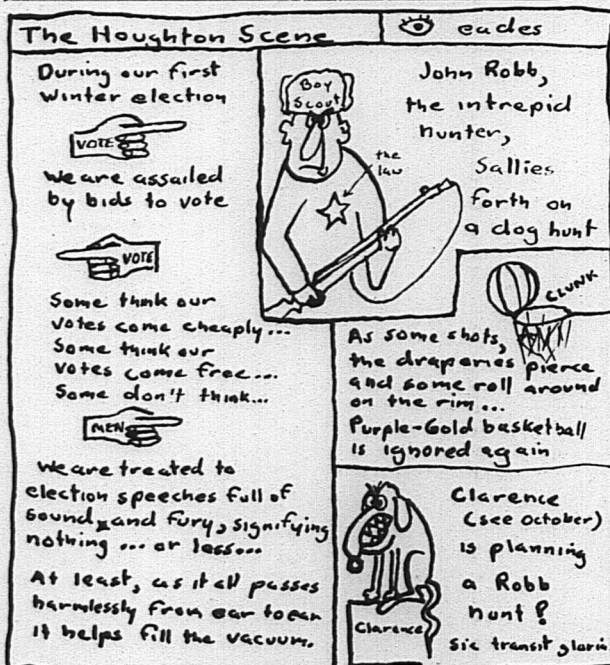 The Houghton Scene
eades
During our first
winter election
VOTE
we are assailed
by bids to vote
VOTE
Some think our
votes come cheaply...
Some think our
votes come free...
Some don't think...
MEN
we are treated to
election speeches full of
sound and fury, signifying
nothing ... or less...
At least, as it all passes
harmlessly from ear to ear
it helps fill the vacuum.
Boy
Scout
the
law
John Robb,
the intrepid
hunter,
Sallies
forth on
a dog hunt
CLUNK
As some shots,
the draperies pierce
and some roll around
on the rim...
Purple-Gold basketball
is ignored again
Clarence
(see October)
is planning
a Robb
hunt?
Sic transit gloria
Clarence